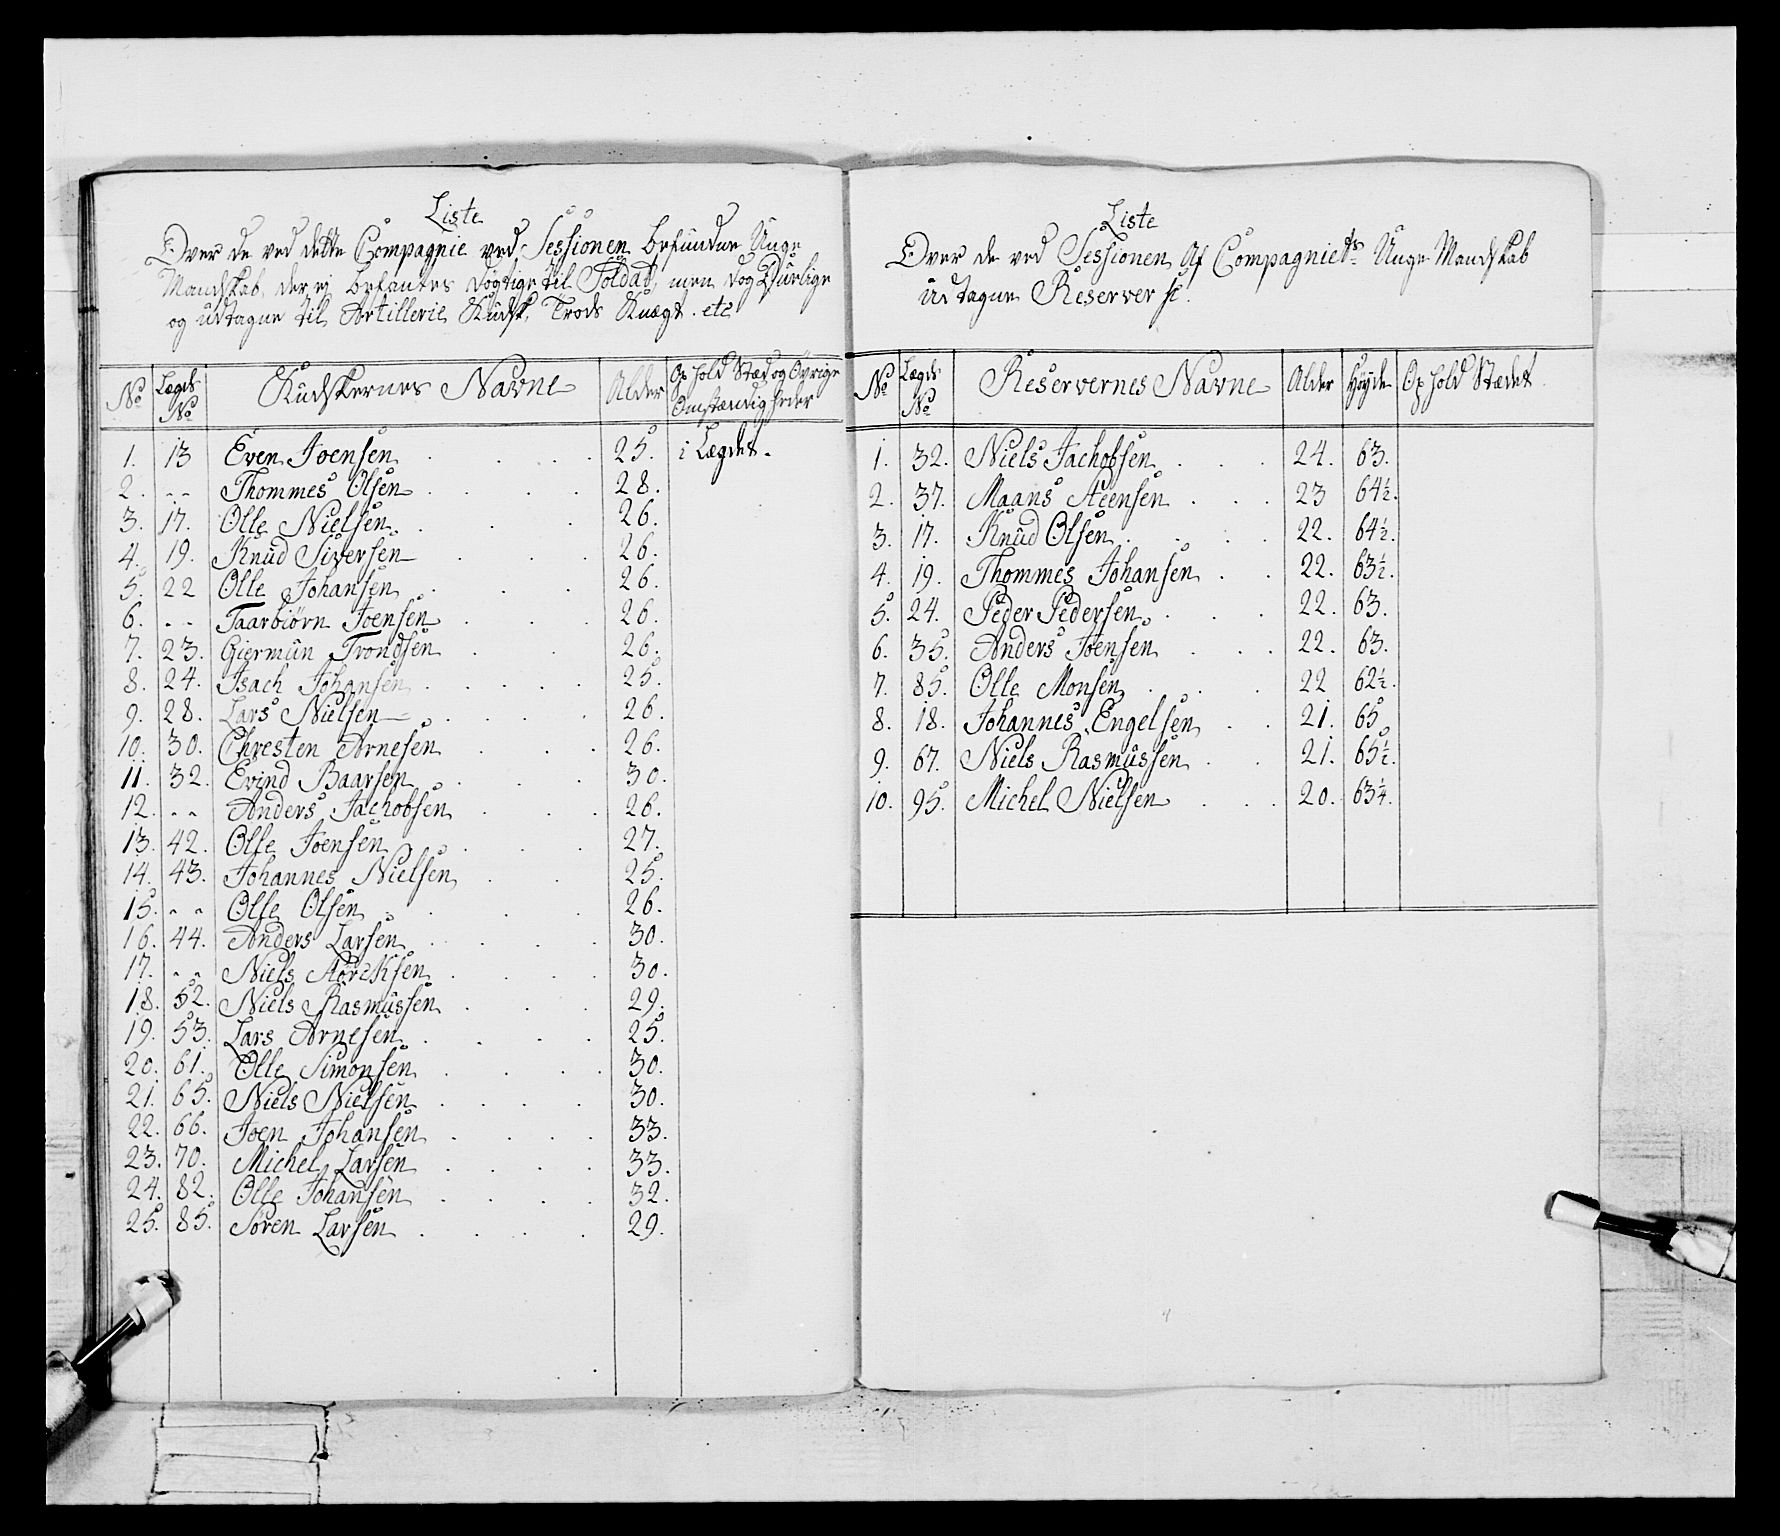 Liste
Over de ved dette Compagnie ved Sessionen befundne Unge
Mandskab, der ej befantes dögtige til Soldat, men dog Duelige
og udtagne til Artillerie Kudsk, Trods Knægt. etc
No Lægds No Kudskernes Navne Alder Ophold Stæd og Övrige Omstændigheder
1. 13 Even Joensen 25. i Lægdet.
2. " " Thommes Olsen 28.
3. 17. Olle Nielsen 26.
4. 19. Knud Siversen 26.
5. 22 Olle Johansen 26.
6. " " Taarbiörn Joensen 26.
7. 23. Giermun Trondsen 26.
8. 24. Isach Johansen 25.
9. 28. Lars Nielsen 26.
10. 30. Chresten Arnesen 26.
11. 32. Evind Baarsen 30.
12. " " Anders Jachobsen 26.
13. 42. Olle Joensen 27.
14. 43. Johannes Nielsen 25.
15. " " Olle Olsen 26.
16. 44. Anders Larsen 30.
17. " " Niels 30.
18. 52. Niels Rasmussen 29.
19. 53. Lars Arnesen 25.
20. 61. Olle Simonsen 30.
21. 65. Niels Nielsen 30.
22. 66. Joen Johansen 33.
23. 70. Michel Larsen 33.
24. 82. Olle Johansen 32.
25. 85. Sören Larsen 29.
Liste
Over de ved Sessionen Af Compagniets Unge Mandskab
udtagne Reserver
No Lægds No Reservernes Navne Alder Höyde Ophold Stædet
1. 32. Niels Jachobsen 24. 63.
2. 37. Maans Steensen 23 64½.
3. 17. Knud Olsen 22. 64½.
4. 19. Thommes Johansen 22. 63½.
5. 24. Peder Pedersen 22. 63.
6. 35. Anders Joensen 22. 63.
7. 85. Olle Monsen 22 62½.
8. 18. Johannes Engelsen 21. 65
9. 67. Niels Rasmussen 21. 65½.
10. 95. Michel Nielsen 20. 63¼.